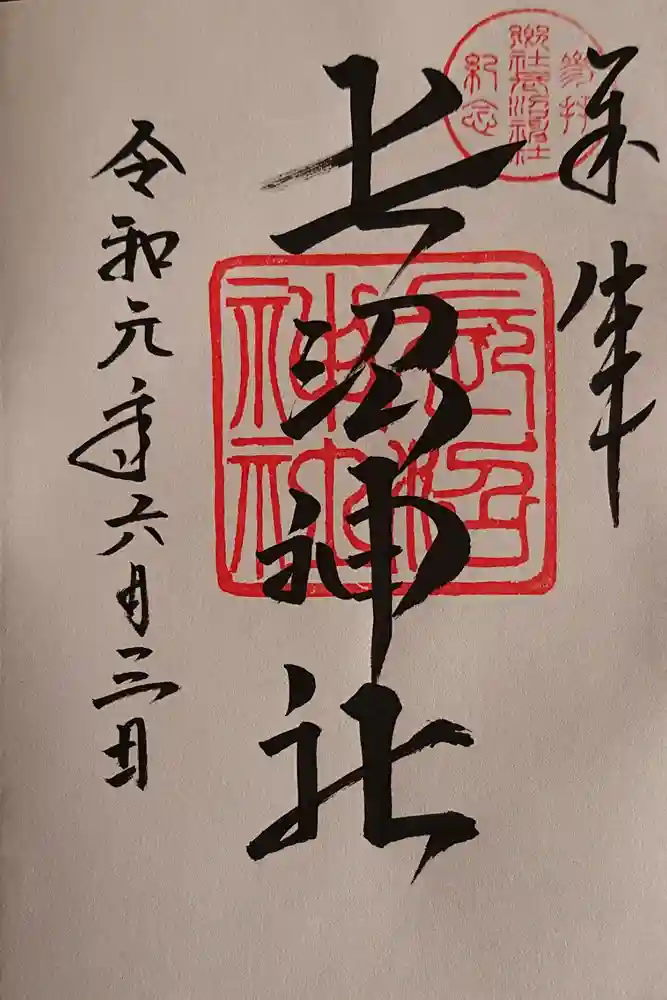 奉拝
參拝
長沼神社
紀念
長沼神社
長沼
神社
令和元年六月三日